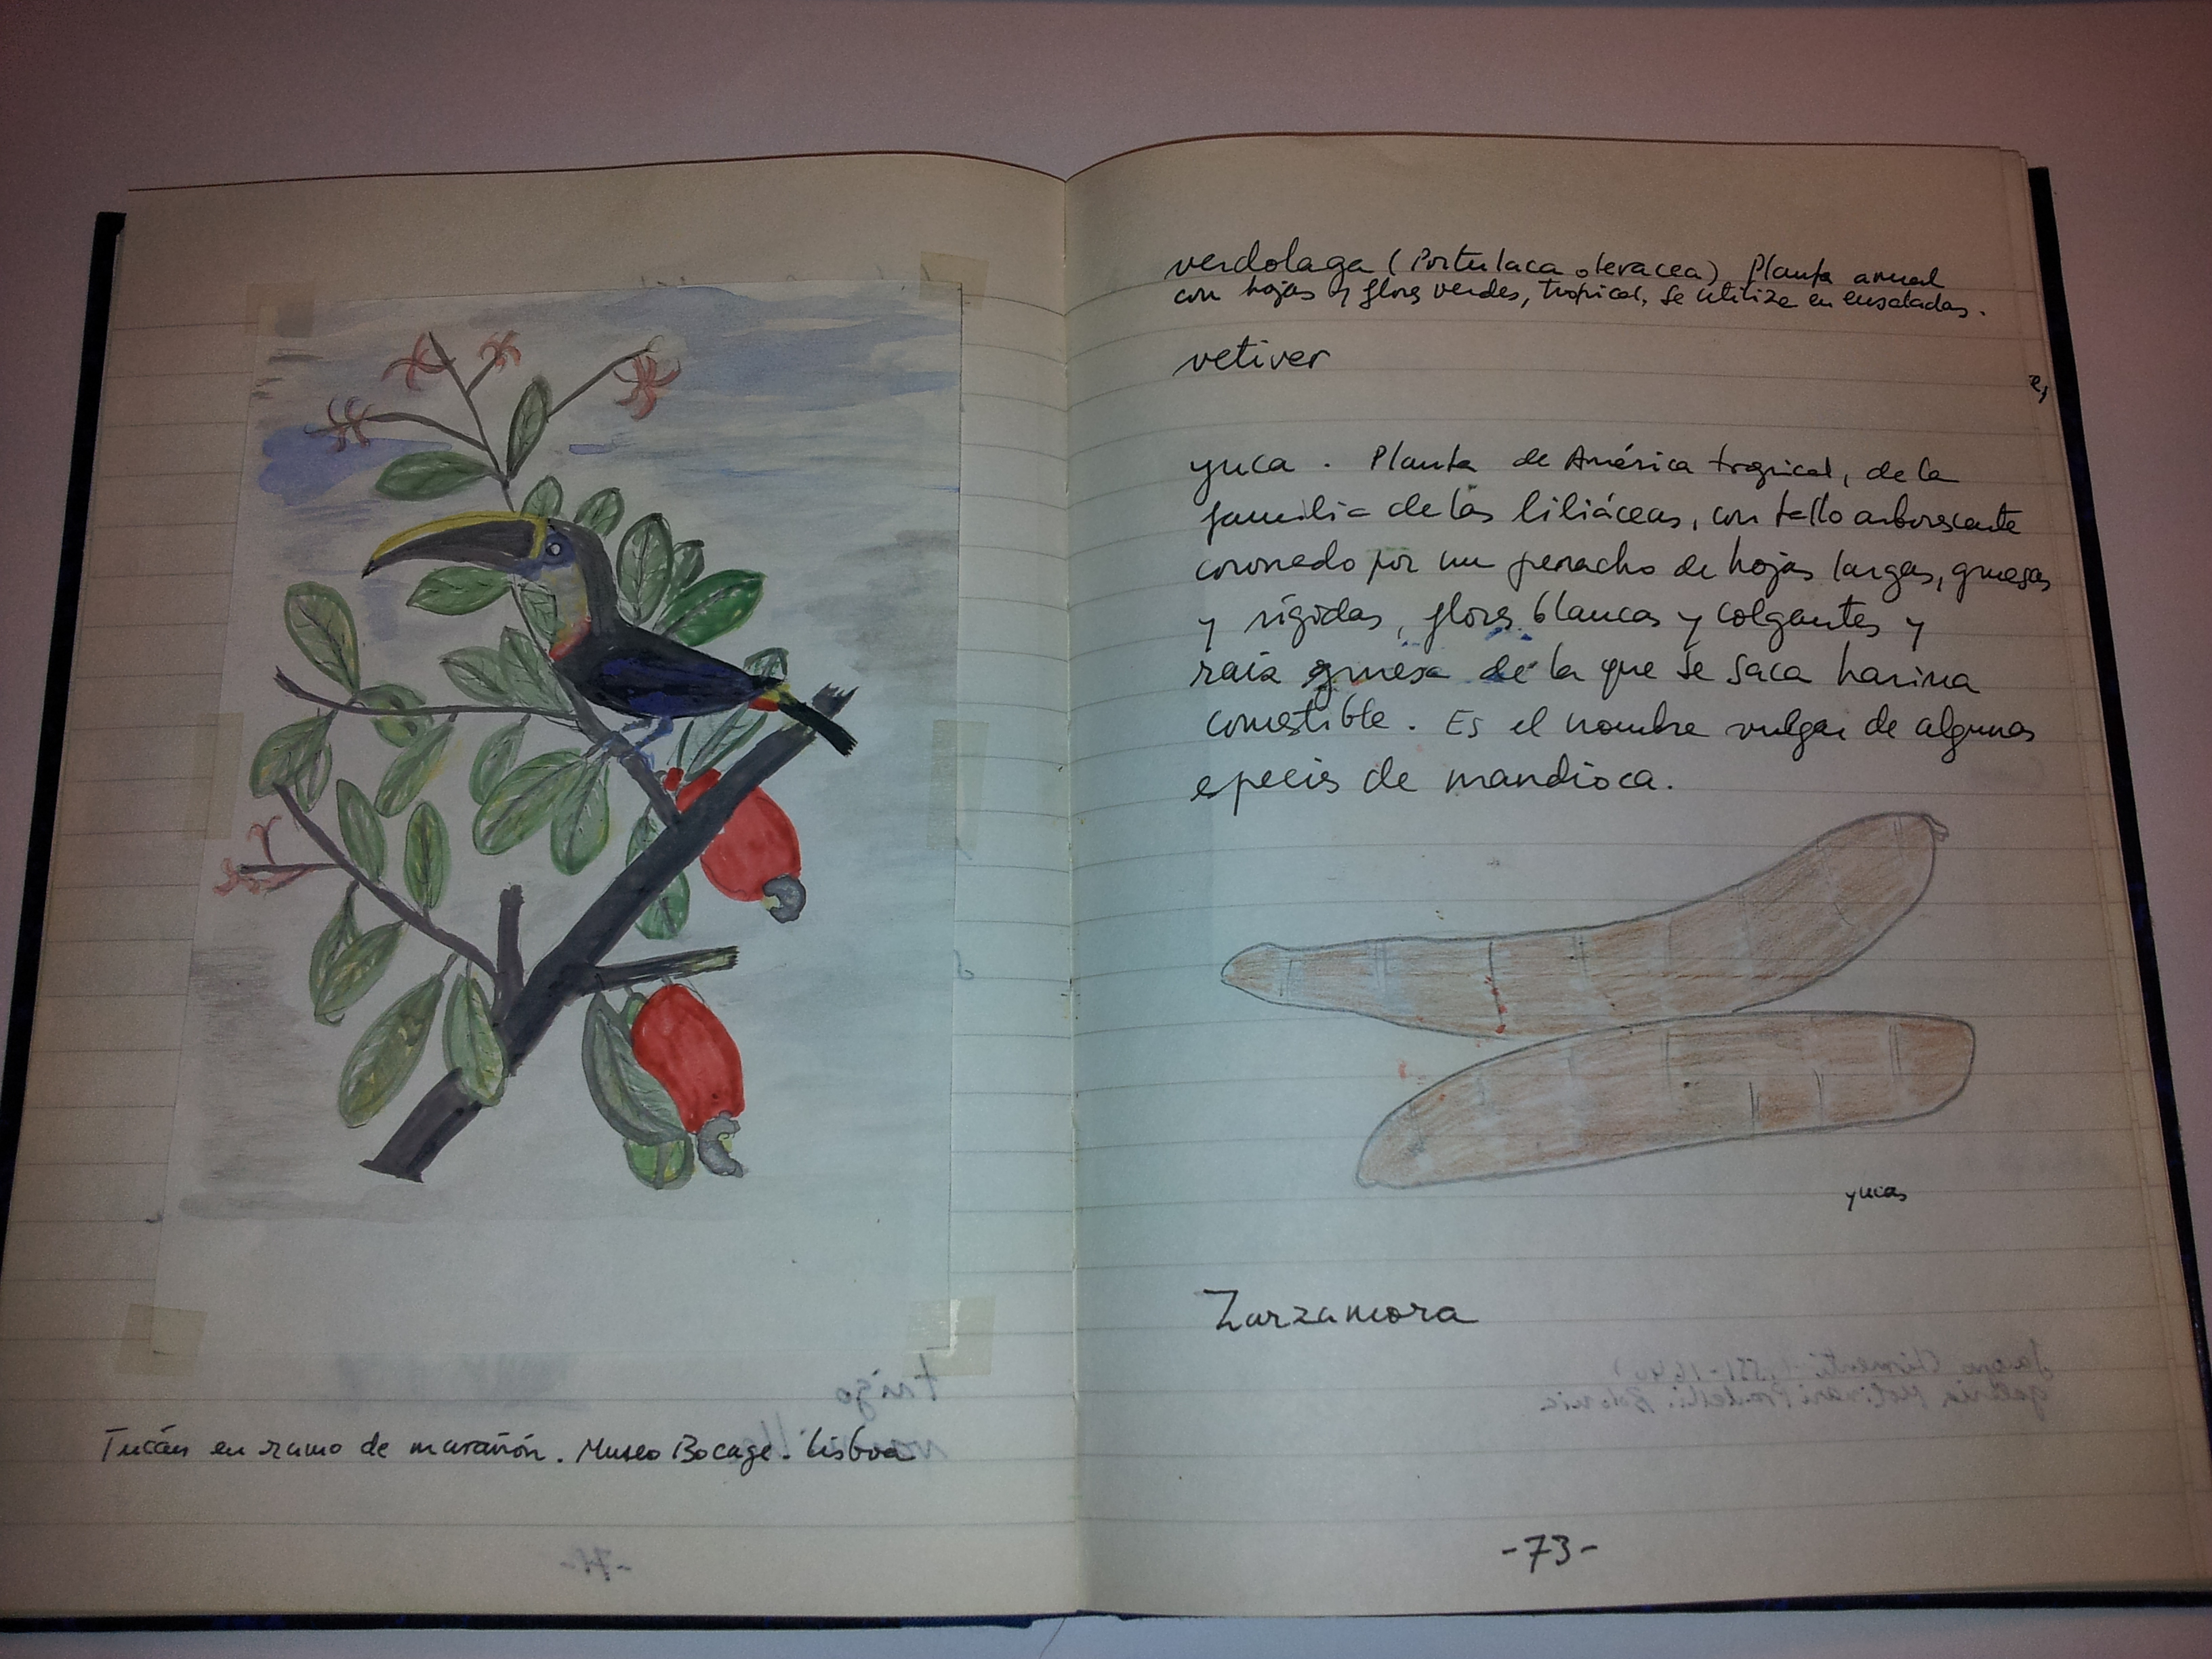 Tucán en ramo de marañón. Museo Bocage. Lisboa
verdolaga (Portulaca oleracea). Planta anual
con hojas y flores verdes, tropical, se utiliza en ensaladas.
vetiver
yuca. Planta de América tropical, de la
familia de las liliáceas, con tallo arborescente
coronado por un penacho de hojas largas, gruesas
y rígidas, flores blancas y colgantes y
raiz gruesa de la que se saca harina
comestible. Es el nombre vulgar de algunas
epecies de mandioca.
yucas
Zarzamora
-73-